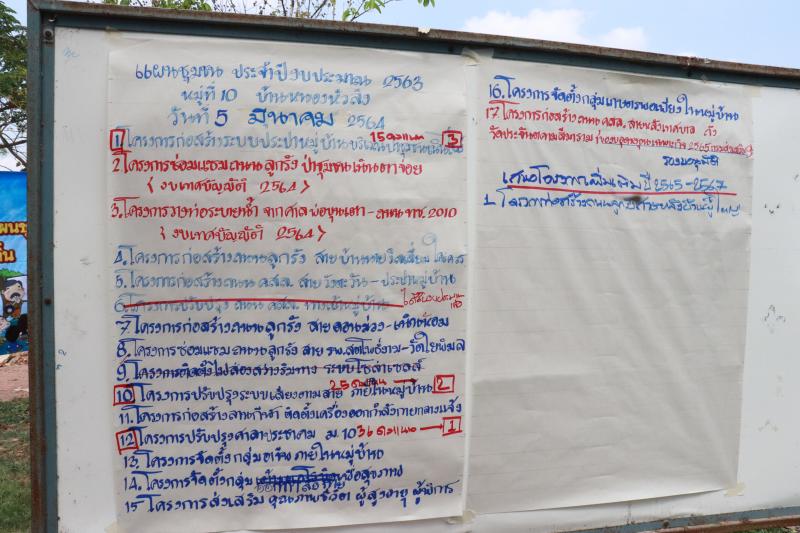 แผนชุมชน ประจำปีงบประมาณ 2563
หมู่ที่ 10 บ้านหนองหัวลิง
วันที่ 5 มีนาคม 2564
15 คะแนน
1 โครงการก่อสร้างระบบประปาหมู่บ้านบริเวณป่าชุมชน 3
2 โครงการซ่อมแซมถนนลูกรัง ป่าชุมชนเนินตาจ่อย
( งบเทศบัญญัติ 2564 )
3. โครงการวางท่อระบายน้ำ จากศาลพ่อขุนเณา - ถนน ทช 2010
( งบเทศบัญญัติ 2564 )
4. โครงการก่อสร้างถนนลูกรัง สายบ้านนาย
5. โครงการก่อสร้างถนน คสล. สายวังตะวัน - ประปาหมู่บ้าน
6. โครงการปรับปรุง ถนน คสล. ภายในหมู่บ้าน
7. โครงการก่อสร้างถนนลูกรัง สายดอนม่วง -
8. โครงการซ่อมแซมถนนลูกรัง สาย รพ.สต โพธิ์งาม - วัดใยพิมล
9. โครงการติดตั้งไฟส่องสว่างริมทาง ระบบโซล่าเซลล์
25 คะแนน
10 โครงการปรับปรุงระบบเสียงตามสาย ภายในหมู่บ้าน 2
11. โครงการก่อสร้างลานกีฬา ติดตั้งเครื่องออกกำลังกายกลางแจ้ง
12 โครงการปรับปรุงศาลาประชาคม ม.10 36 คะแนน 1
13. โครงการจัดตั้งกลุ่มอาชีพ ภายในหมู่บ้าน
14. โครงการจัดตั้งกลุ่ม ออกกำลังกาย เพื่อสุขภาพ
15 โครงการส่งเสริม คุณภาพชีวิต ผู้สูงอายุ ผู้พิการ
16. โครงการจัดตั้งกลุ่มเกษตรพอเพียงในหมู่บ้าน
17 โครงการก่อสร้างถนน คสล. สายหลังเทศบาล ถึง
วัดประจันตคามสีมาราม
รออนุมัติ
เสนอโครงการเพิ่มเติม ปี 2565 - 2567
1 โครงการก่อสร้างถนนลูกรังสายหลังบ้านผู้ใหญ่